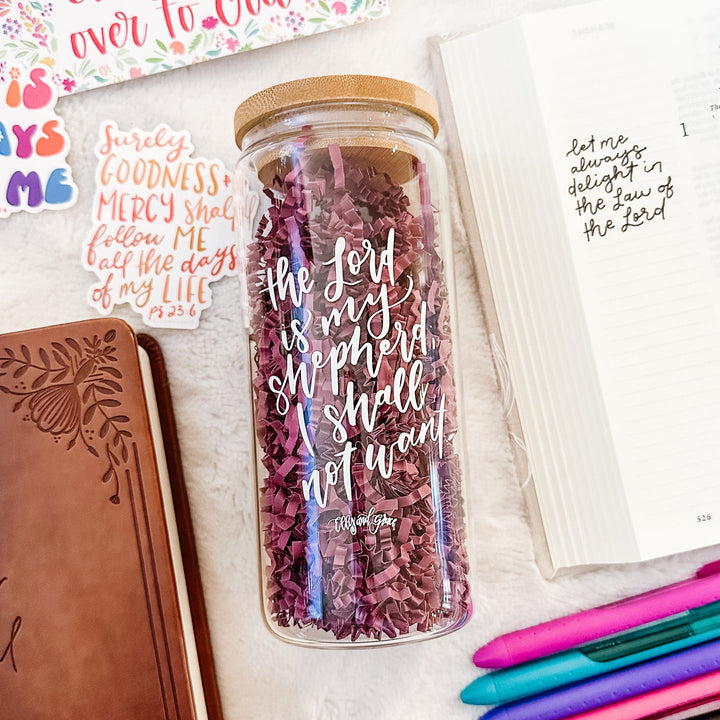 over to God
is
days
me
Surely
GOODNESS +
MERCY shall
follow ME
all the days
of my LIFE
PS 23:6
the Lord
is my
shepherd,
I shall
not want
Elly and Grace
let me
always
delight in
the Law of
the Lord
1
526